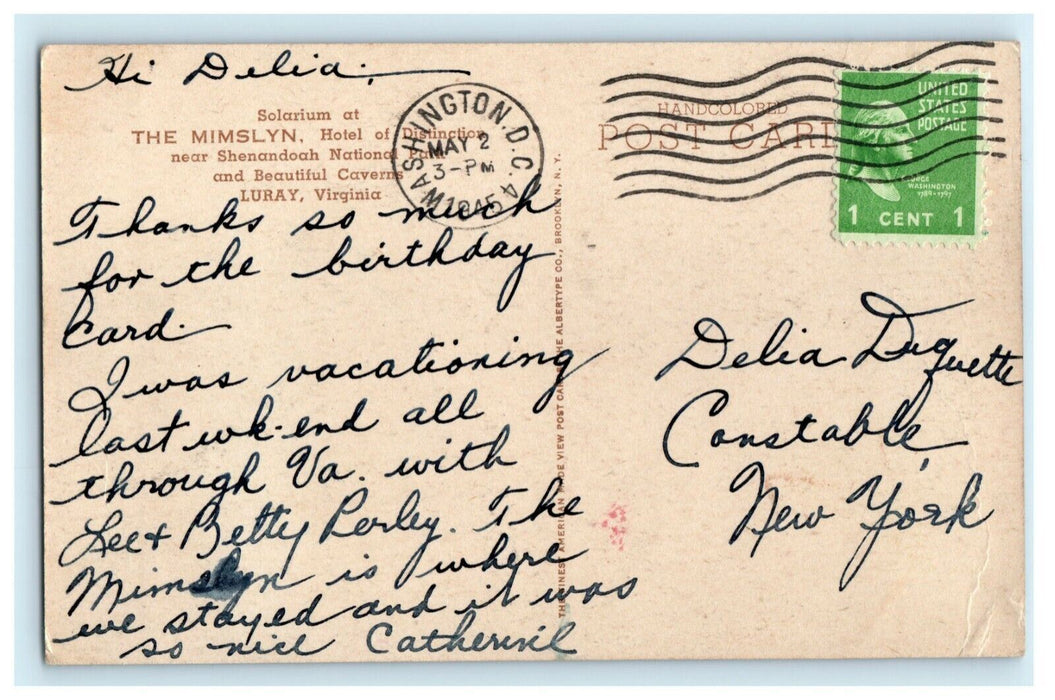 Hi Delia,
Solarium at
THE MIMSLYN, Hotel of Distinction
near Shenandoah National Park
and Beautiful Caverns
LURAY, Virginia
Thanks so much
for the birthday
card.
I was vacationing
last wk-end all
through Va. with
Lee & Betty Perley. The
Mimslyn is where
we stayed and it was
so nice
WASHINGTON, D.C. 4
MAY 2
3-PM
THE FINEST AMERICAN MADE VIEW POST CARDS THE ALBERTYPE CO., BROOKLYN, N.Y.
HANDCOLORED
POST CARD
UNITED
STATES
POSTAGE
GEORGE
WASHINGTON
1789-1797
1 CENT 1
Delia Duquette
Constable,
New York